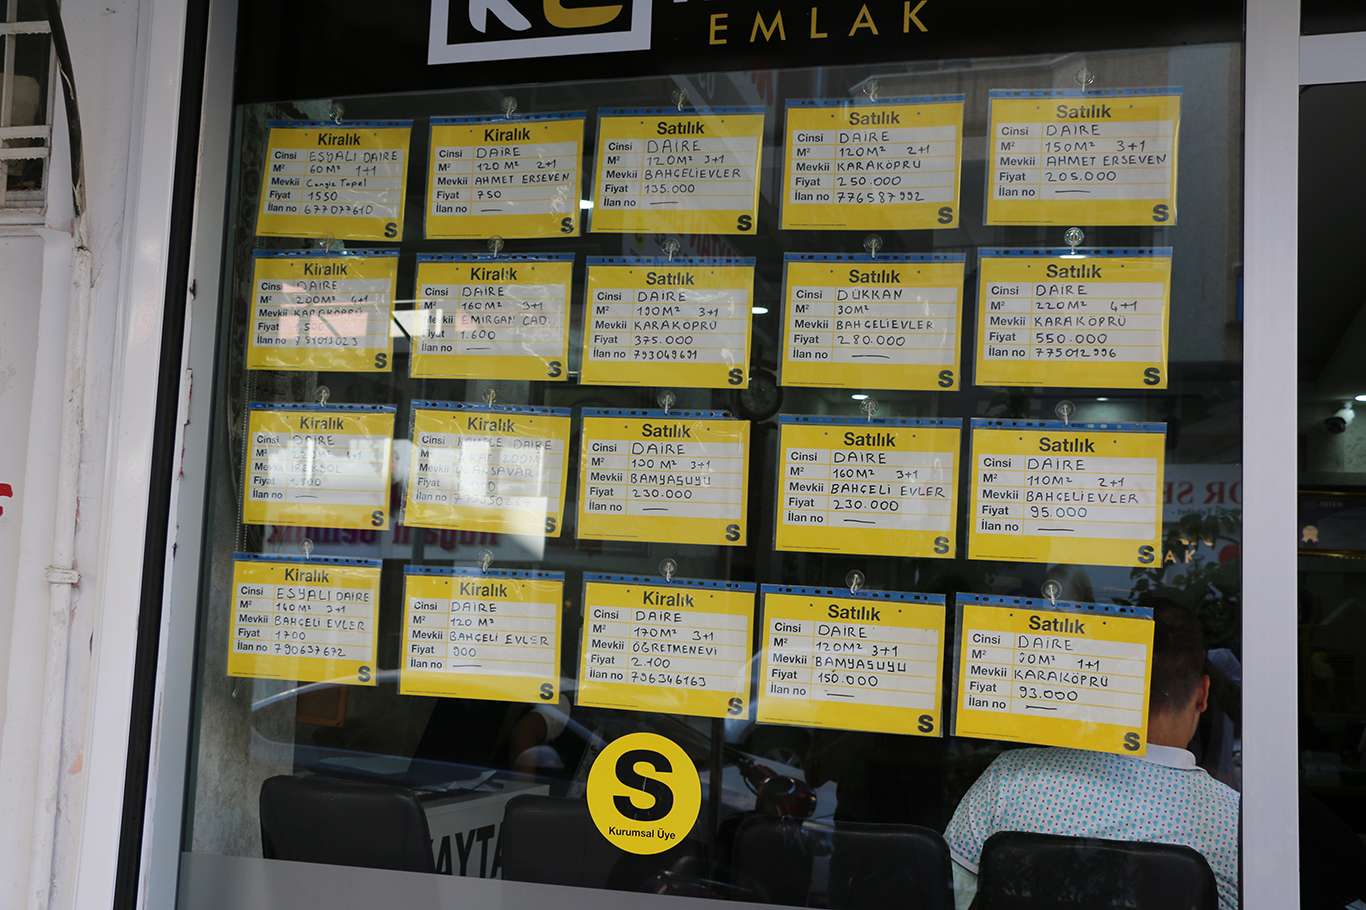 EMLAK
Kiralık
Cinsi EŞYALI DAİRE
M² 60M² 1+1
Mevkii Cengiz Topel
Fiyat 1550
İlan no 677077610
S
Kiralık
Cinsi DAİRE
M² 120 M² 2+1
Mevkii AHMET ERSEVEN
Fiyat 750
İlan no —
S
Satılık
Cinsi DAİRE
M² 120M² 3+1
Mevkii BAHÇELİEVLER
Fiyat 135.000
İlan no —
S
Satılık
Cinsi DAİRE
M² 120M² 2+1
Mevkii KARAKÖPRÜ
Fiyat 250.000
İlan no 776587992
S
Satılık
Cinsi DAİRE
M² 150M² 3+1
Mevkii AHMET ERSEVEN
Fiyat 205.000
İlan no —
S
Kiralık
Cinsi DAİRE
M² 200M² 4+1
Mevkii KARAKÖPRÜ
Fiyat
İlan no
S
Kiralık
Cinsi DAİRE
M² 160M² 3+1
Mevkii EMİRGAN CAD.
Fiyat 1.600
İlan no —
S
Satılık
Cinsi DAİRE
M² 190M² 3+1
Mevkii KARAKÖPRÜ
Fiyat 375.000
İlan no 793049691
S
Satılık
Cinsi DÜKKAN
M² 30M²
Mevkii BAHÇELİEVLER
Fiyat 280.000
İlan no —
S
Satılık
Cinsi DAİRE
M² 220M² 4+1
Mevkii KARAKÖPRÜ
Fiyat 550.000
İlan no 775012996
S
Kiralık
Cinsi DAİRE
M² 3+1
Mevkii
Fiyat
İlan no —
S
Kiralık
Cinsi DAİRE
M² 200M²
Mevkii
Fiyat
İlan no
S
Satılık
Cinsi DAİRE
M² 100 M² 3+1
Mevkii BAMYASUYU
Fiyat 230.000
İlan no —
S
Satılık
Cinsi DAİRE
M² 160M² 3+1
Mevkii BAHÇELİ EVLER
Fiyat 230.000
İlan no —
S
Satılık
Cinsi DAİRE
M² 110M² 2+1
Mevkii BAHÇELİEVLER
Fiyat 95.000
İlan no —
S
Kiralık
Cinsi EŞYALI DAİRE
M² 140M² 3+1
Mevkii BAHÇELİ EVLER
Fiyat 1700
İlan no 790637672
S
Kiralık
Cinsi DAİRE
M² 120 M²
Mevkii BAHÇELİ EVLER
Fiyat 900
İlan no —
S
Kiralık
Cinsi DAİRE
M² 170M² 3+1
Mevkii ÖĞRETMENEVİ
Fiyat 2.100
İlan no 796346163
S
Satılık
Cinsi DAİRE
M² 120M² 3+1
Mevkii BAMYASUYU
Fiyat 150.000
İlan no —
S
Satılık
Cinsi DAİRE
M² 90M² 1+1
Mevkii KARAKÖPRÜ
Fiyat 93.000
İlan no —
S
S
Kurumsal Üye